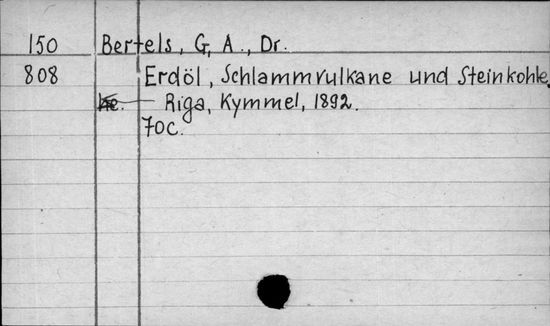 150 Bertels, G, A., Dr.
808 Erdöl, Schlammvulkane und Steinkohle.
— Riga, Kymmel, 1892.
70c.